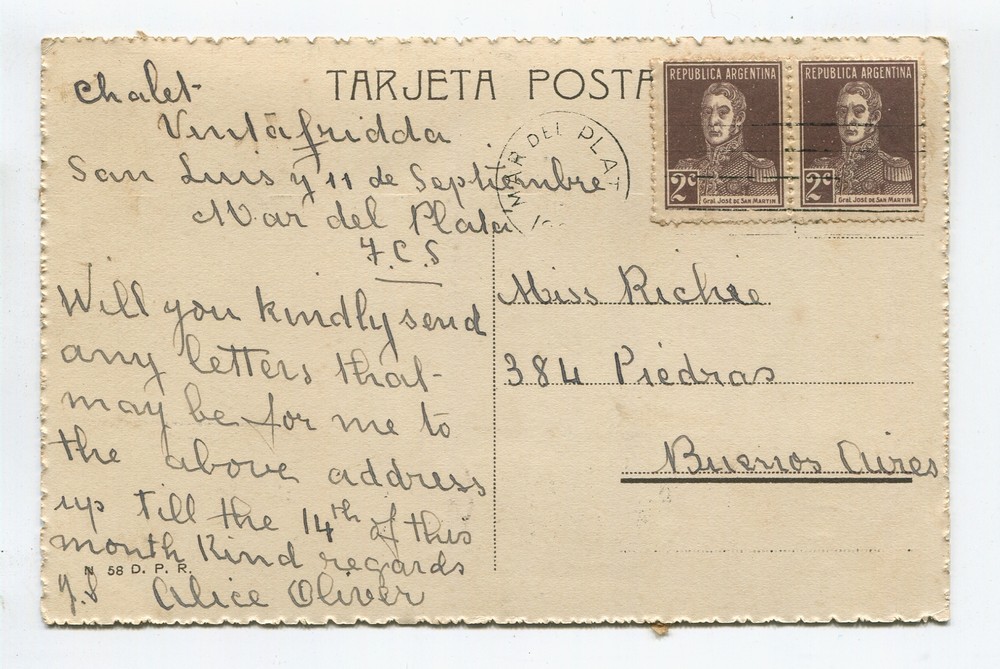 TARJETA POSTA
Chalet
Vintafridda
San Luis y 11 de Septiembre
Mar del Plata
F.C.S
Will you kindly send
any letters that
may be for me to
the above address
up till the 14th of this
month Kind regards
Alice Oliver
N 58 D. P. R.
REPUBLICA ARGENTINA
2c
Gral. José de San Martin
REPUBLICA ARGENTINA
2c
Gral. José de San Martin
MAR DEL PLAT
Miss Richie
384 Piedras
Buenos Aires